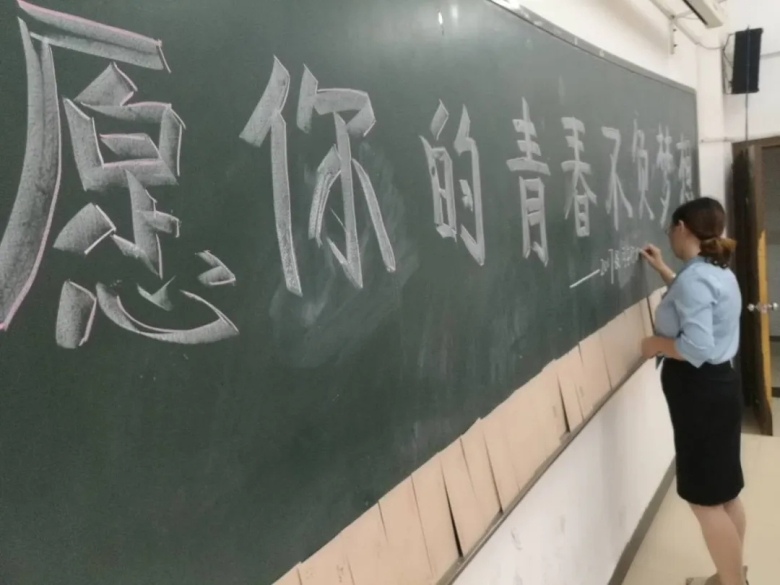 愿你的青春不负梦想